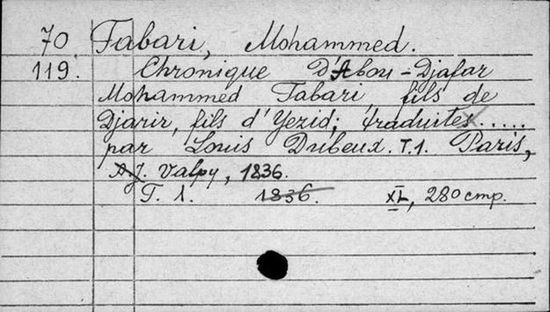 70 Tabari, Mohammed.
119. Chronique D'Abou-Djafar
Mohammed Tabari, fils de
Djarir, fils d'Yezid; traduite.....
par Louis Dubeux. T.1. Paris,
A.J. Valpy, 1836.
T. 1. 1836. XL, 280 стр.